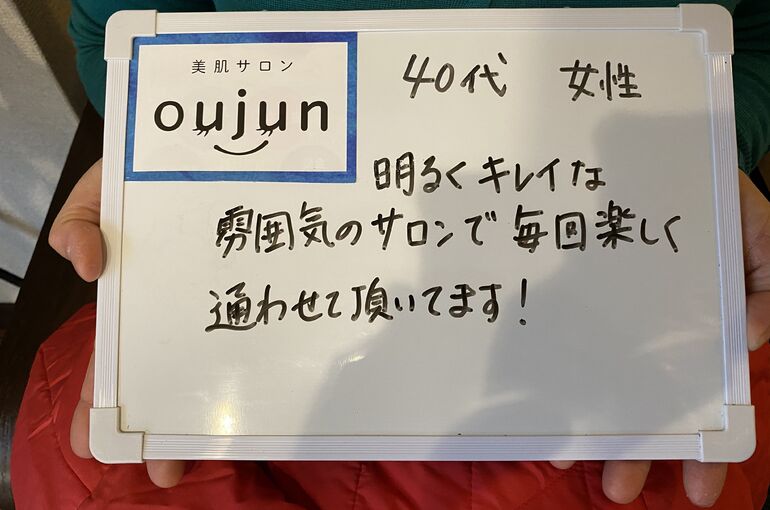 美肌サロン
oujun
40代 女性
明るくキレイな
雰囲気のサロンで毎回楽しく
通わせて頂いてます！